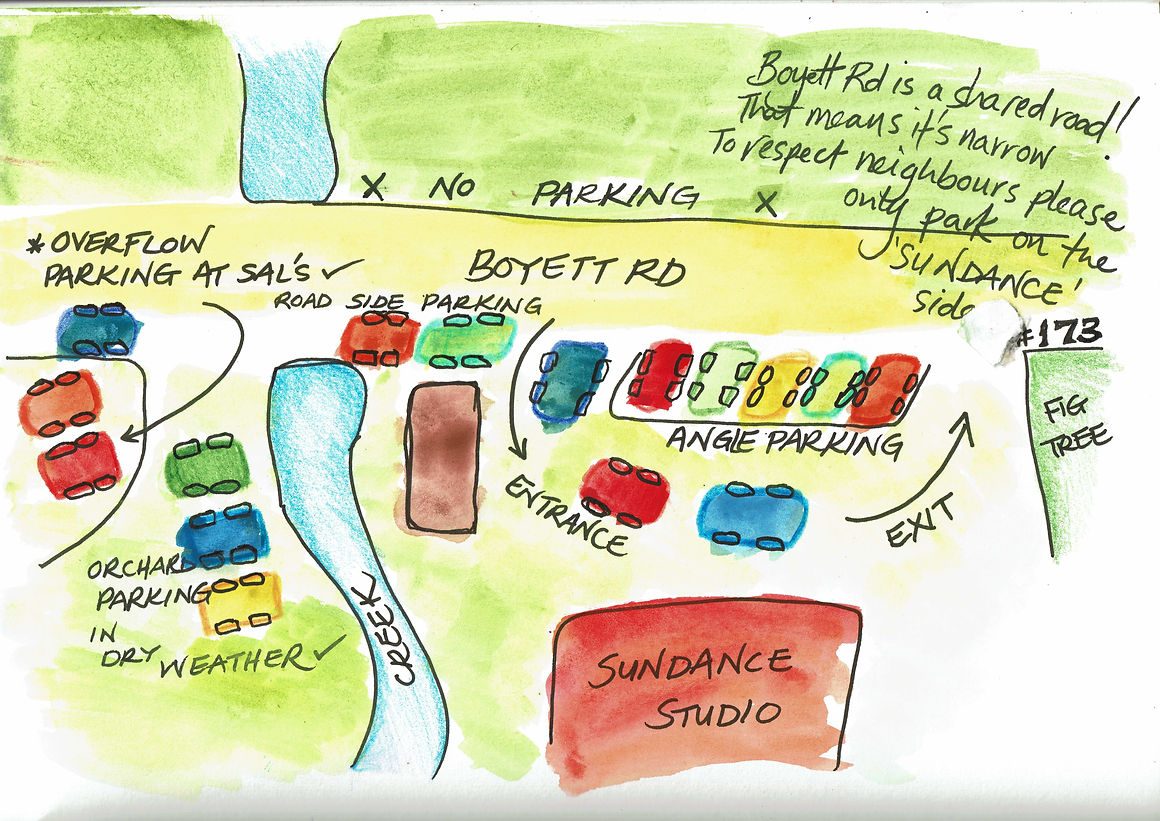 Boyett Rd is a shared road!
That means it's narrow.
To respect neighbours please
only park on the
'SUNDANCE'
side
X NO PARKING X
* OVERFLOW
PARKING AT SAL'S ✓
BOYETT RD
ROAD SIDE PARKING
#173
FIG
TREE
ANGLE PARKING
ENTRANCE
EXIT
ORCHARD
PARKING
IN
DRY WEATHER ✓
CREEK
SUNDANCE
STUDIO